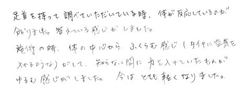 足首を持って調べていただいている時、体が反応しているのが
分かりました。笑っている感じがしました。
施術の時、体の中心から、ふくらむ感じ(タイヤに空気を
入れるような)がして、知らない間に力が入っていたものが
ゆるむ感じがしました。今は、とても軽くなりました。